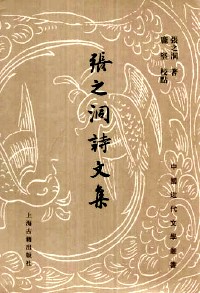 張之洞 著
龐堅 校點
張之洞詩文集
中國近代文學叢書
上海古籍出版社